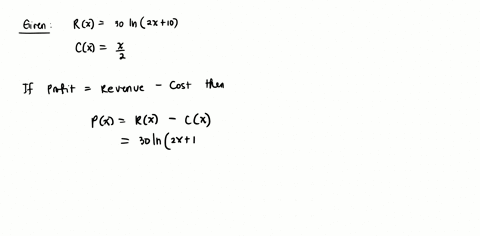 Given: R(x) = 30 ln(2x+10)
C(x) = x/2
If Profit = Revenue - Cost then
P(x) = R(x) - C(x)
= 30 ln(2x+1